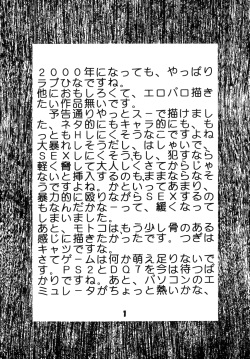 2000年になっても、やっぱり
ラブひなですね。
他におもしろくて、エロパロ描き
たい作品無いです。
予告通りやっとスーで描けまし
た、ネタ的にもキャラ的にも、も
っともHしにくそうなこですよね
大暴れしそうだし、はしゃいで、
SEXしにくそうもし、犯すなら
軽く脅して大人しくさてからじゃ
ないと挿入するのもままならなそ
うですよね。かといってあまり、
暴力的に殴りながらSEXするの
もなんだかなーって、緩くなって
しまいました。
あと、モトコはもう少し骨のある
感じに描きたかったです。つぎは
キャツですな。
さてゲームは何か萌え足りないで
す。PS2とDQ7を今は待つば
かりですね。あと、パソコンのエ
ミュレータがちょっと熱いかな、
1